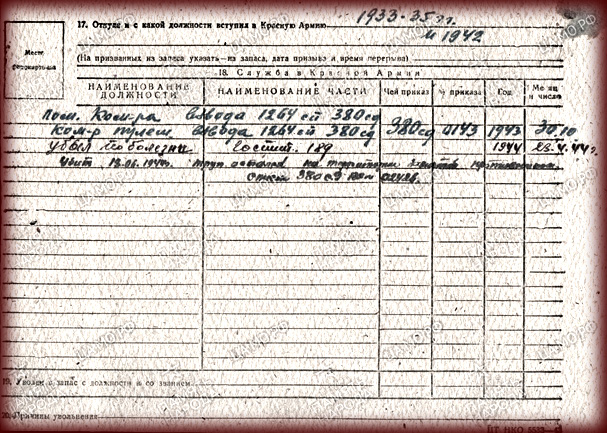 17. Откуда и с какой должности вступил в Красную Армию 1933-35 г.г.
и 1942
Место
фотокарточки
(На призванных из запаса указать—из запаса, дата призыва и время перерыва)
18. Служба в Красной Армии
НАИМЕНОВАНИЕ ДОЛЖНОСТИ НАИМЕНОВАНИЕ ЧАСТИ Чей приказ № приказа Год Месяц и число
пом. Ком-ра взвода 1264 сп 380 сд
ком-р пулем взвода 1264 сп 380 сд 380 сд 0143 1943 30.10
убыл по болезни Госпит. 189 1944 23.4.44 г.
убит труп остался на территории
380 сд
19. Уволен в запас с должности и со званием
20. Причины увольнения
НКО
ЦАМО.РФ